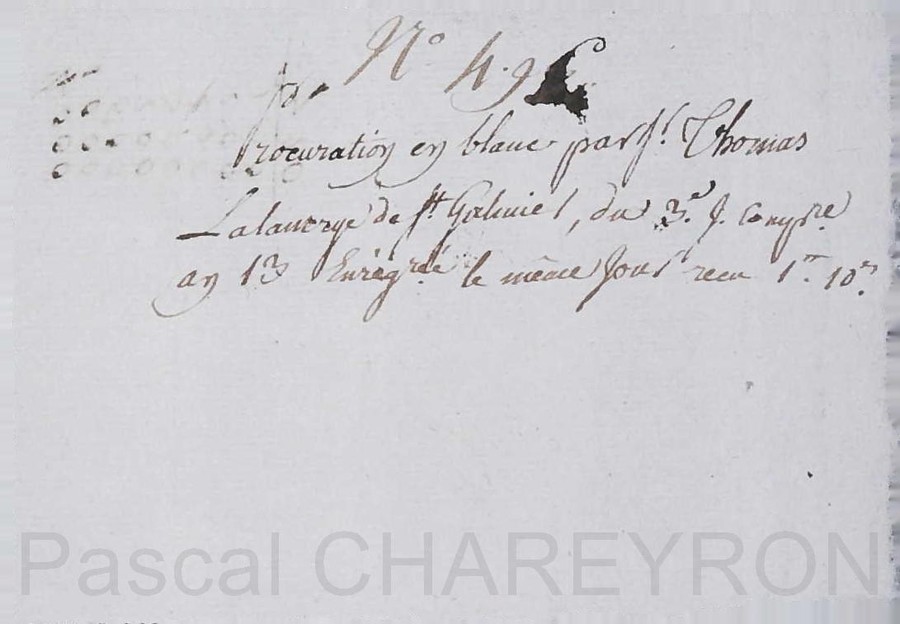 N.º 49
Procuration en blanc par S.r Thomas
Lalaurye de S.t Galmier, du 3.e J. Compre
an 13 Enregrée le même jour recu 1.fr 10.c
Pascal CHAREYRON